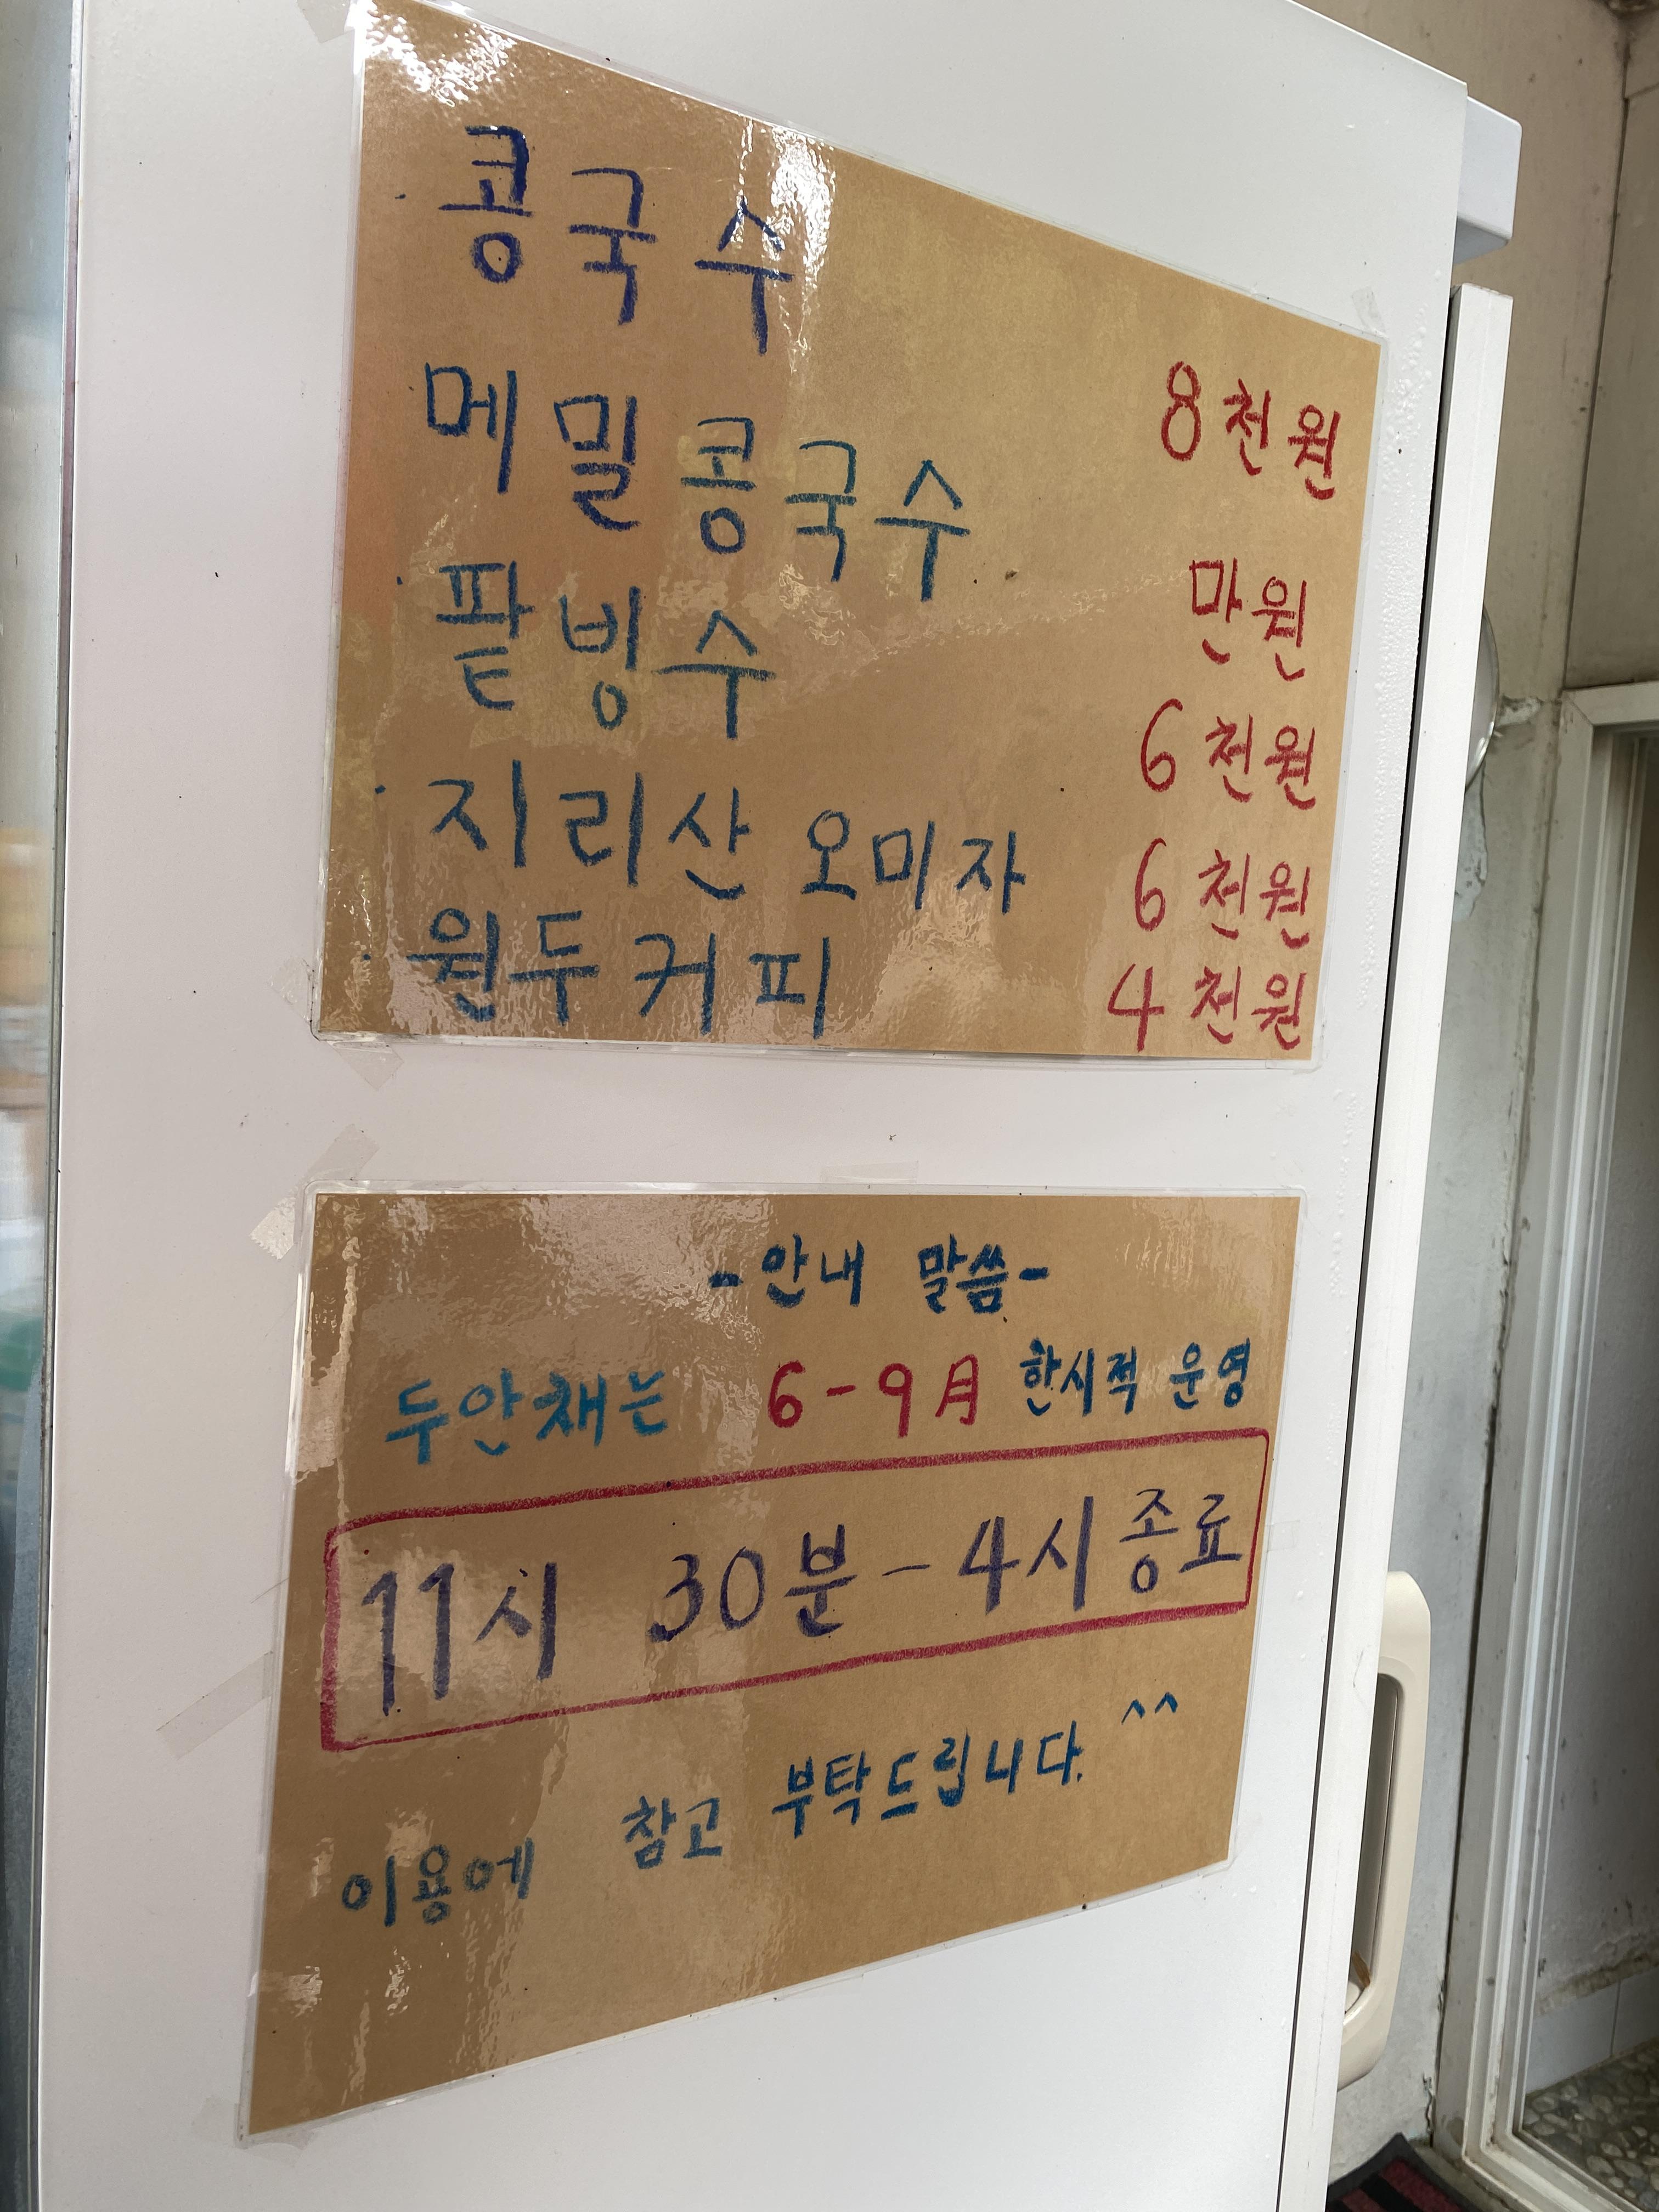 콩국수 8천원
메밀콩국수 만원
팥빙수 6천원
지리산 오미자 6천원
원두커피 4천원
-안내 말씀-
두안채는 6-9月 한시적 운영
11시 30분-4시종료
이용에 참고 부탁드립니다. ^^